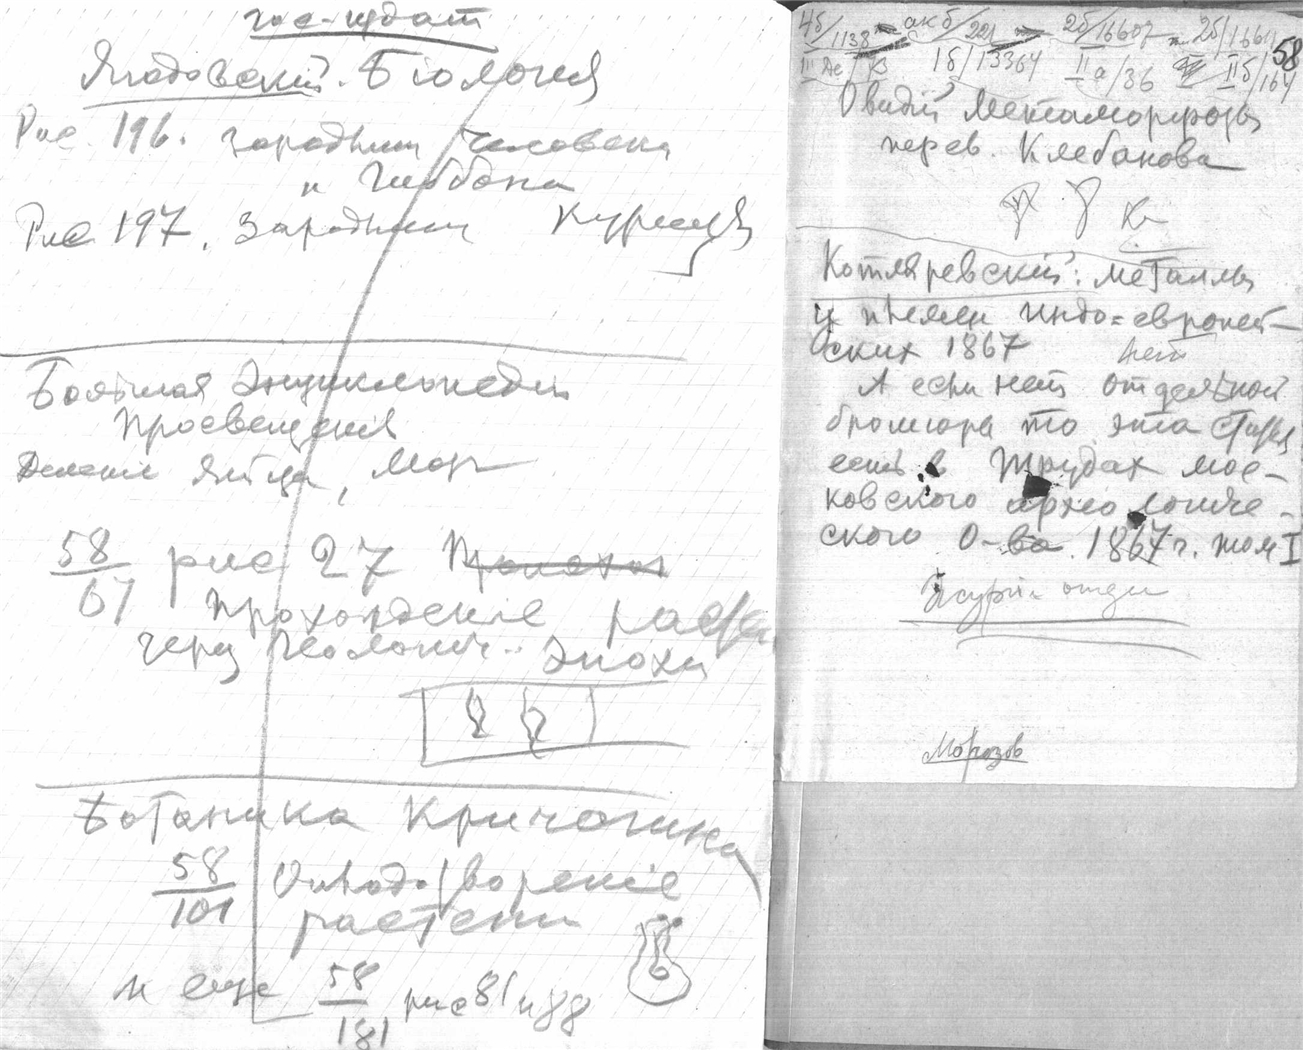 гос-издат
Ягодовский. Біология
Рис. 196. зародыши человека
и Гиббона
Рис 197. Зародыши курицы
Большая Энциклопедия
Просвещения
Деление яйца,
58/67 рис 27
прохождение
через Геологич. эпохи
Ботаника Кричагина
58/101 Оплодотворение
растений
и еще 58/181 рис 81 и 88
4б/1138 акб/221 2б/16607 2б/1661
58
1б/13364 IIа/36 IIб/164
Овидий Метаморфозы
перев. Клеванова
Котляревский: металлы
у племен индо=европей-
ских 1867 нет
А если нет отдельной
брошюры то эта статья
есть в Трудах мос-
ковского археологиче-
ского О-ва 1867 г. том I
Морозов